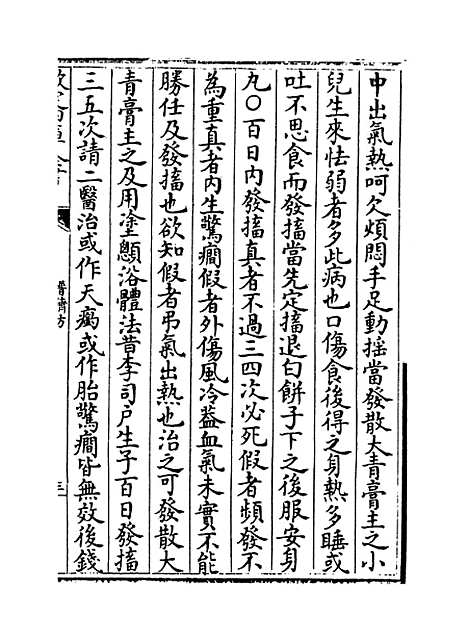 中出氣熱呵欠煩悶手足動搖當發散大青膏主之小
兒生來怯弱者多此病也口傷食後得之身熱多睡或
吐不思食而發搐當先定搐退白餅子下之後服安身
九○百日內發搐真者不過三四次必死假者頻發不
為重真者內生驚癇假者外傷風冷蓋血氣未實不能
勝任及發搐也欲知假者吊氣出熱也治之可發散大
青膏主之及用塗顖浴體法昔李司戶生子百日發搐
三五次請二醫治或作天瘹或作胎驚癇皆無效後錢
普濟方